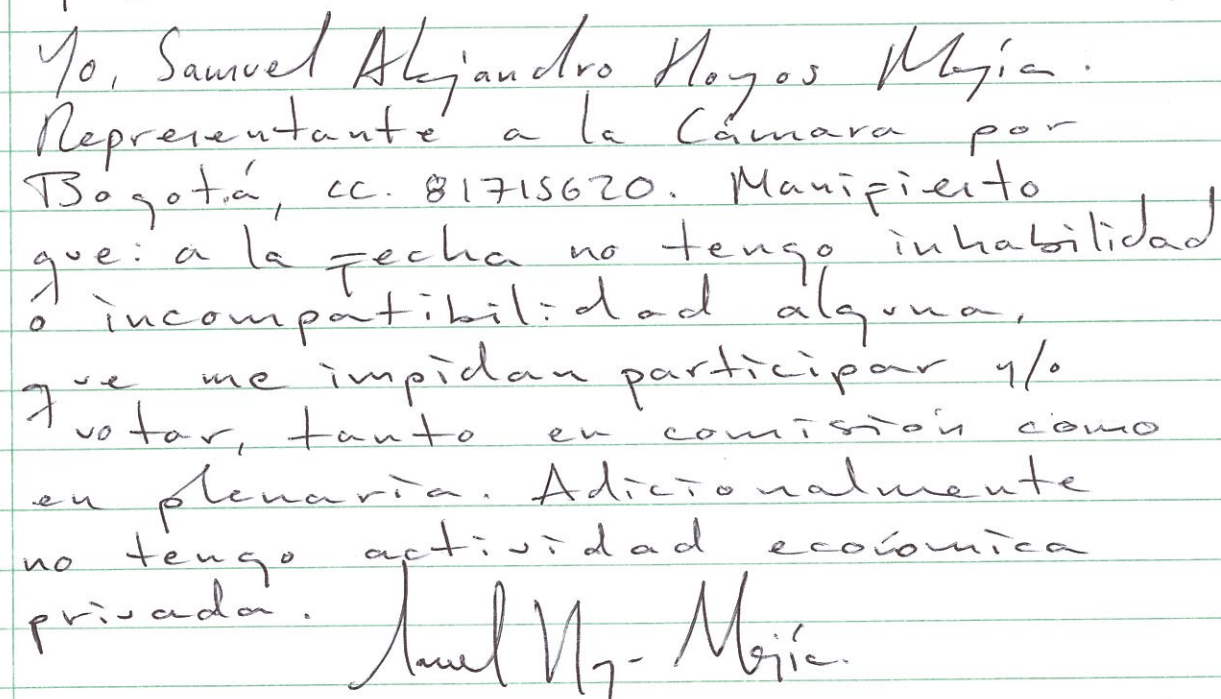 Yo, Samuel Alejandro Hoyos Mejía.
Representante a la Cámara por
Bogotá, cc. 81715620. Manifiesto
que: a la fecha no tengo inhabilidad
ó incompatibilidad alguna,
que me impidan participar y/o
votar, tanto en comisión como
en plenaria. Adicionalmente
no tengo actividad ecoíomica
privada.
Mejía.